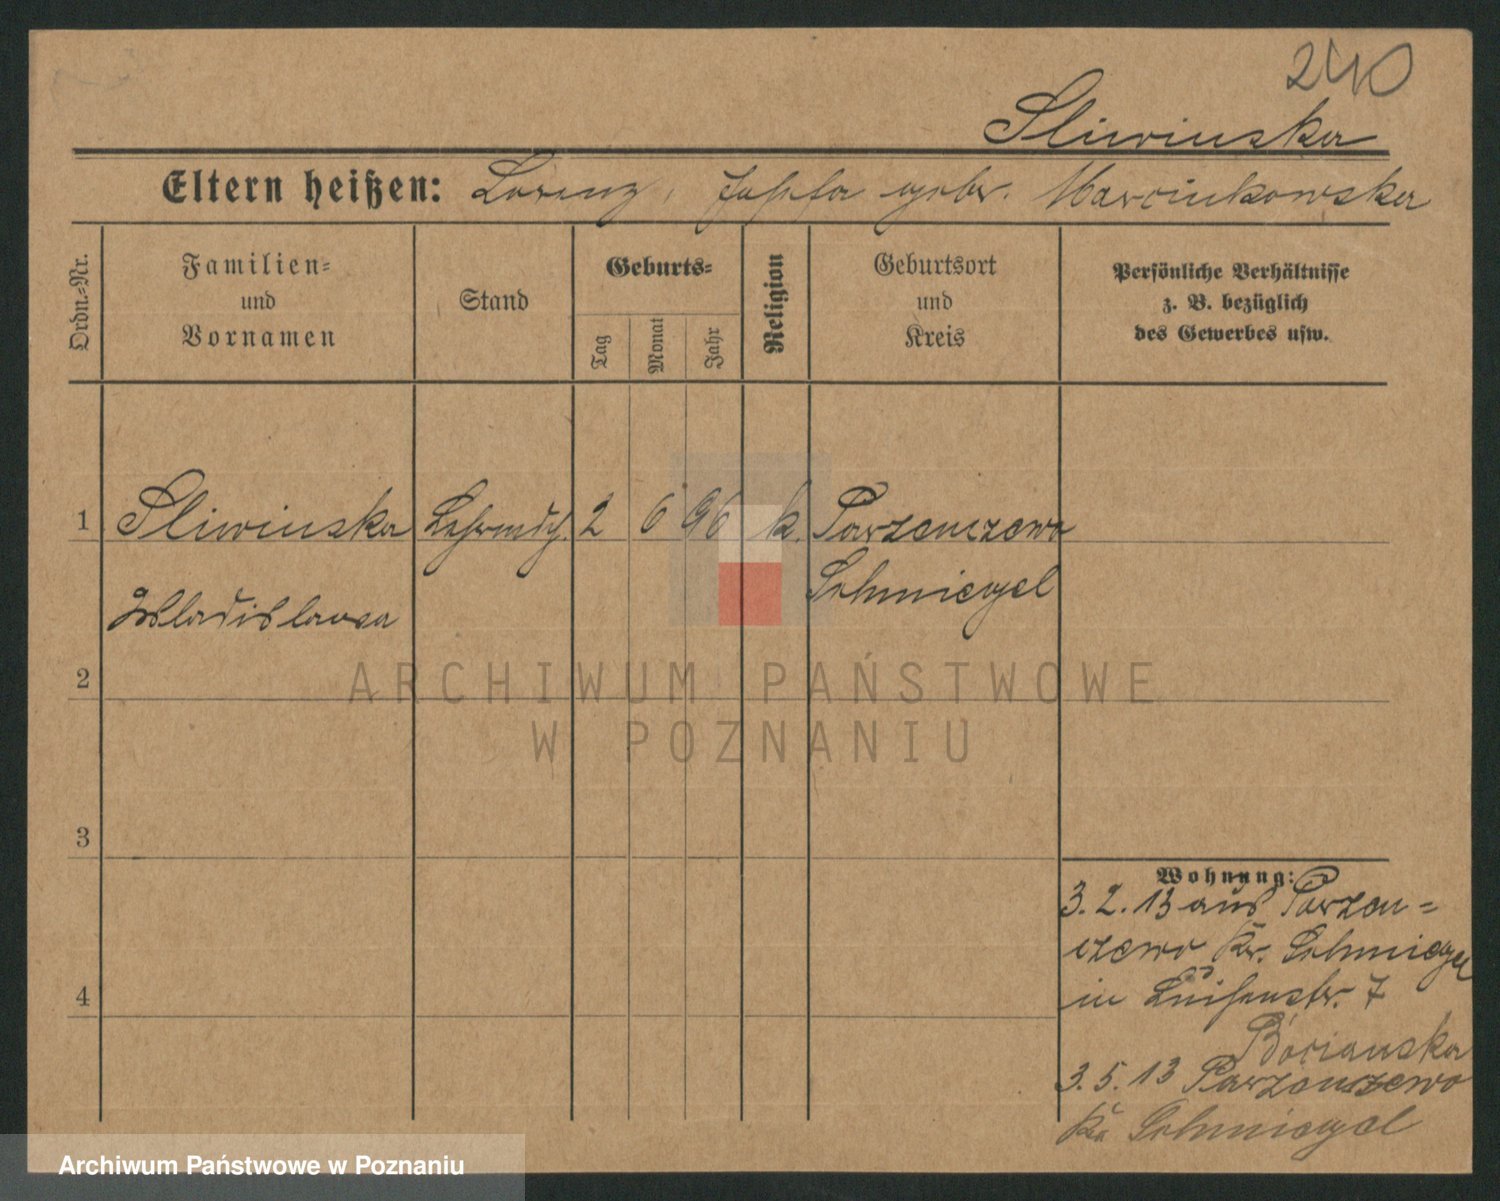 240
Sliwinska
Eltern heißen: Lorenz, Josefa gebr. Marcinkowska
Ordn.-Nr.
Familien-
und
Vornamen
Stand
Geburts-
Tag
Monat
Jahr
Religion
Geburtsort
und
Kreis
Persönliche Verhältnisse
z. B. bezüglich
des Gewerbes usw.
1 Sliwinska Lehrmdch. 2 6 96 k. Parzenczewo
Schmiegel
Wladislawa
2
3
4
Wohnung:
3.2.13 aus Parzen=
czewo Kr. Schmiegel
in Luisenstr. 7
Bocianska
3.5.13 Parzenczewo
Kr. Schmiegel
ARCHIWUM PAŃSTWOWE
W POZNANIU
Archiwum Państwowe w Poznaniu